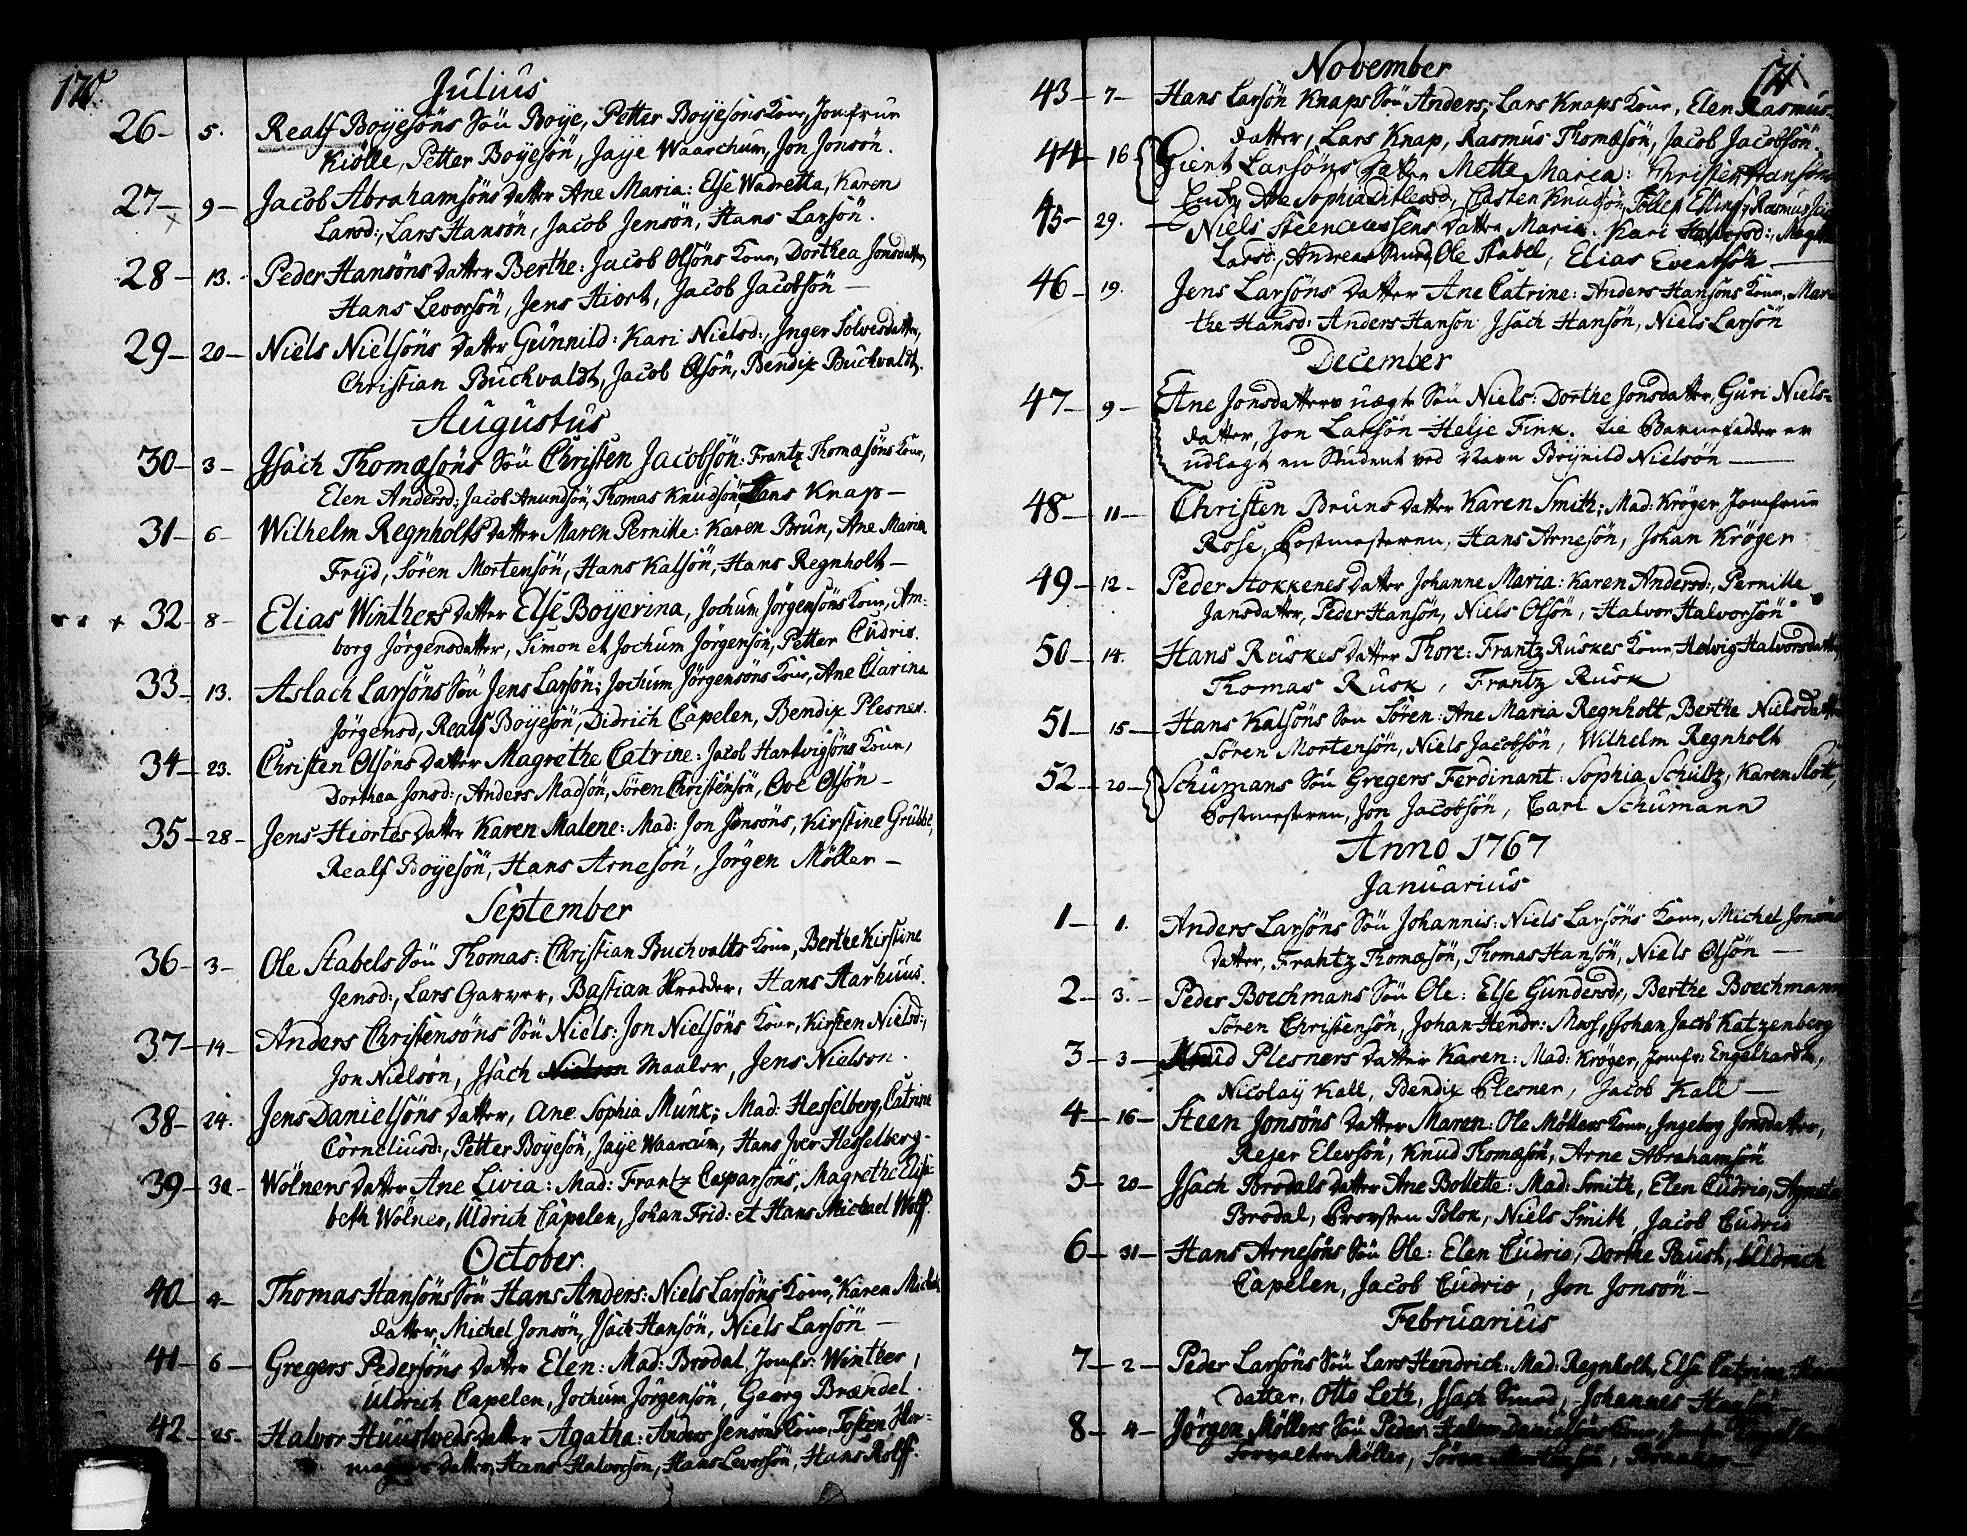 170.
Julius
26 – 5. Realf Boyesöns Sön Boye, Petter Boyesöns Kone, Jomfrue
Kiölle, Petter Boyesön, Jaye Waarchum, Jon Jonsön.
27 – 9 – Jacob Abrahamsöns Datter Ane Maria: Else Wadretta, Karen
Larsd:, Lars Hansön, Jacob Jensön, Hans Larsön.
28 – 13. Peder Hansöns Datter Berthe: Jacob Olsöns Kone, Dorthea Jonsdatter,
Hans Levorsön, Jens Hiort, Jacob Jacobsön –
29 – 20 – Niels Nielsöns Datter Gunnild: Kari Nielsd:, Inger Solvesdatter,
Christian Buchvaldt, Jacob Olsön, Bendix Buchvaldt.
Augustus
30 – 3 – Isach Thomæsöns Sön Christen Jacobsön: Frantz Thomæsöns Kone,
Elen Andersd:, Jacob Amundsön, Thomas Knudsön, Hans Knap –
31 – 6 – Wilhelm Regnholts Datter Maren Pernille: Karen Brun, Ane Maria
Fryd, Sören Mortensön, Hans Kalsön, Hans Regnholt –
+ 32 – 8 – Elias Winthers Datter Else Boyerina, Jochum Jörgensöns Kone, Am-
borg Jörgensdatter, Simon et Jochum Jörgensön, Petter Cudrio.
33 – 13. Aslach Larsöns Sön Jens Larsön; Jochum Jörgensöns Kone, Ane Clarina
Jörgensd, Realf Boyesön, Didrich Capelen, Bendix Plesner.
34 – 23. Christen Olsöns Datter Magrethe Catrine: Jacob Hartvigsöns Kone,
Dorthea Jonsd:, Anders Madsön, Sören Christensön, Ove Olsön –
35 – 28 – Jens Hiortes Datter Karen Malene: Mad: Jon Jonsöns, Kirstine Grubbe,
Realf Boyesön, Hans Arnesön, Jörgen Möller –
September
36 – 3 – Ole Stabels Sön Thomas: Christian Buchvalts Kone, Berthe Kirstine
Jensd:, Lars Garver, Bastian Skredder, Hans Aarhuus.
37 – 14 – Anders Christensöns Sön Niels: Jon Nielsöns Kone, Kirsten Nielsd:,
Jon Nielsön, Isach Maaler, Jens Nielson.
38 – 24. Jens Danielsöns Datter, Ane Sophia Munk; Mad: Hesselberg, Catrine
Corneliusd:, Petter Boyesön, Jaye Waarcum, Hans Iver Hesselberg.
39 – 30 – Wölners Datter Ane Livia: Mad: Frantz Casparsöns, Magrethe Elisa-
beth Wölner, Uldrich Capelen, Johan Frid: et Hans Michael Wolff.
October.
40 – 4 – Thomas Hansöns Sön Hans Anders: Niels Larsöns Kone, Karen Michels
datter, Michel Jonsön, Isach Hansön, Niels Larsön –
41 – 6 – Gregers Pedersöns Datter Elen: Mad: Brodal, Jomfr: Winther,
Uldrich Capelen, Jochum Jörgensön, Georg Brændel.
42 – 25 – Halvor Huusweds Datter Agatha: Anders Jensöns Kone, Tosten
Datter, Hans Halvorson, Hans Levorsön, Hans Rolff.
171
November
43 – 7 – Hans Larsön Knaps Sön Anders; Lars Knaps Kone, Elen Rasmus-
datter, Lars Knap, Rasmus Thomæsön, Jacob Jacobsön.
44 – 16 Gient Larsöns Datter Mette Maria: Christen Hansöns
Ane Sophia Ditlevsd, Casten Knudsön, Rasmus
45 – 29. Niels Steenclaussens Datter Maria. Kari Halvorsd:,
Larsd, Andreas Smed, Ole Stabel, Elias Evertsön –
46 – 19. Jens Larsöns Datter Ane Catrine: Anders Hansöns Kone, Mar-
the Hansd: Anders Hanson Isach Hansön, Niels Larsön
December
47 – 9 – Ane Jonsdatters uægte Sön Niels: Dorthe Jonsdatter, Guri Niels-
datter, Jon Larsön Helje Fink. Til Barnefadder er
udlagt en Student ved Navn Brynild Nielsön –
48 – 11 – Christen Bruns Datter Karen Smith; Mad: Kröger, Jomfrue
Rose, Postmesteren, Hans Arnesön, Johan Kröger
49 – 12 – Peder Stokkenes Datter Johanne Maria: Karen Andersd:, Pernille
Jansdatter, Peder Hansön, Niels Olsön, Halvor Halvorsön.
50 – 14. Hans Ruskes Datter Thore: Frantz Ruskes Kone, Helvig Halvorsdatter,
Thomas Rusk, Frantz Rusk
51 – 15 – Hans Kalsöns Sön Sören: Ane Maria Regnholt, Berthe Nielsdatter
Sören Mortensön, Niels Jacobsön, Wilhelm Regnholt
52 – 20 – Schumans Sön Gregers Ferdinant: Sophia Schultz, Karen Slott,
Postmesteren, Jon Jacobsön, Carl Schumann
Anno 1767
Januarius
1 – 1. Anders Larsöns Sön Johannis: Niels Larsöns Kone, Michel Jonsöns
Datter, Frantz Thomæsön, Thomas Hansön, Niels Olsön –
2 – 3. Peder Boechmans Sön Ole: Else Gundersd:, Berthe Boechmann
Sören Christensön, Johan Hendr: Mus, Johan Jacob Katzenberg
3 – 3 – Knud Plesners Datter Karen: Mad: Kröger, Jomfr: Engelhardt,
Nicolay Kall, Bendix Plesner, Jacob Kall –
4 – 16 – Steen Jonsöns Datter Maren: Ole Möllers Kone, Ingeborg Jonsdatter,
Rejer Elevsön, Knud Thomæsön, Arne Abrahamsön
5 – 20 – Isach Brodals Datter Ane Bollette: Mad: Smith, Elen Cudrio, Agneta
Brodal, Provsten Blok, Niels Smith, Jacob Cudrio
6 – 31 – Hans Arnesöns Sön Ole: Elen Cudrio, Dorthe Paust, Uldrich
Capelen, Jacob Cudrio, Jon Jonsön –
Februarius
7 – 2 – Peder Larsöns Sön Lars Hendrich: Mad: Regnholt, Else Catrine
Datter, Otto Leth, Isach Smed, Johannes Hansön –
8 – 4 – Jörgen Möllers Sön Peder: Danielsöns Kone,
Forvalter Möller, Sören Mortensön,